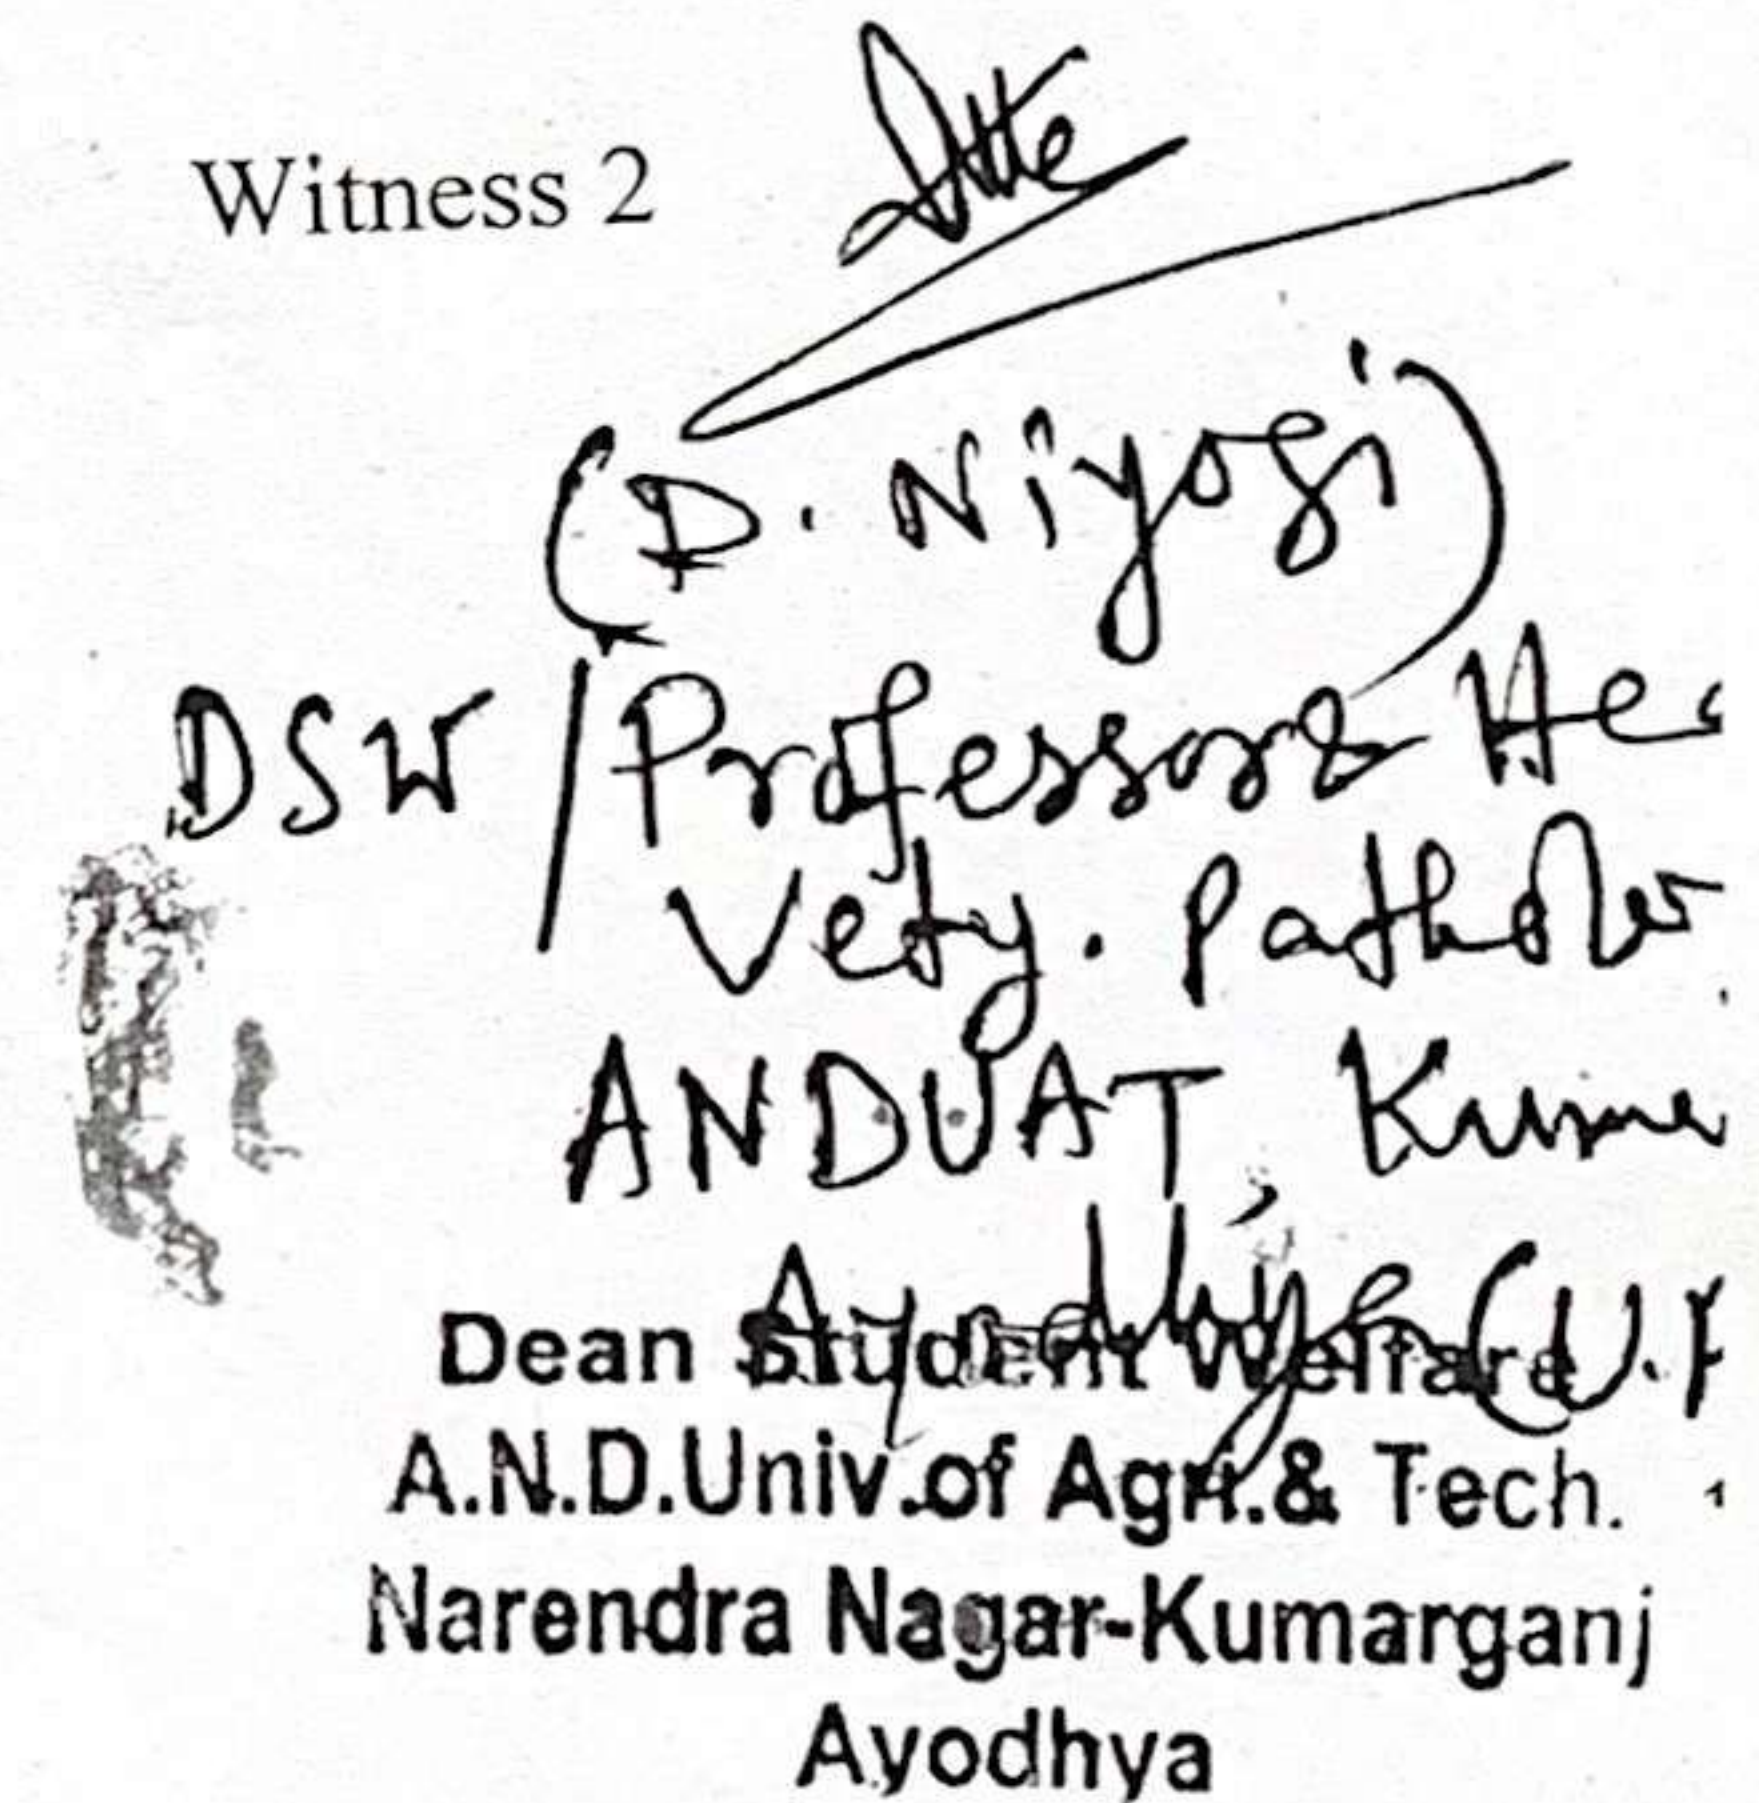 Witness 2
(D. Niyogi)
DSW / Professor & Hea
Vety. Patholo
ANDUAT, Kuma
Ayodhya (U.P
Dean Student Welfare
A.N.D.Univ.of Agri.& Tech.
Narendra Nagar-Kumarganj
Ayodhya